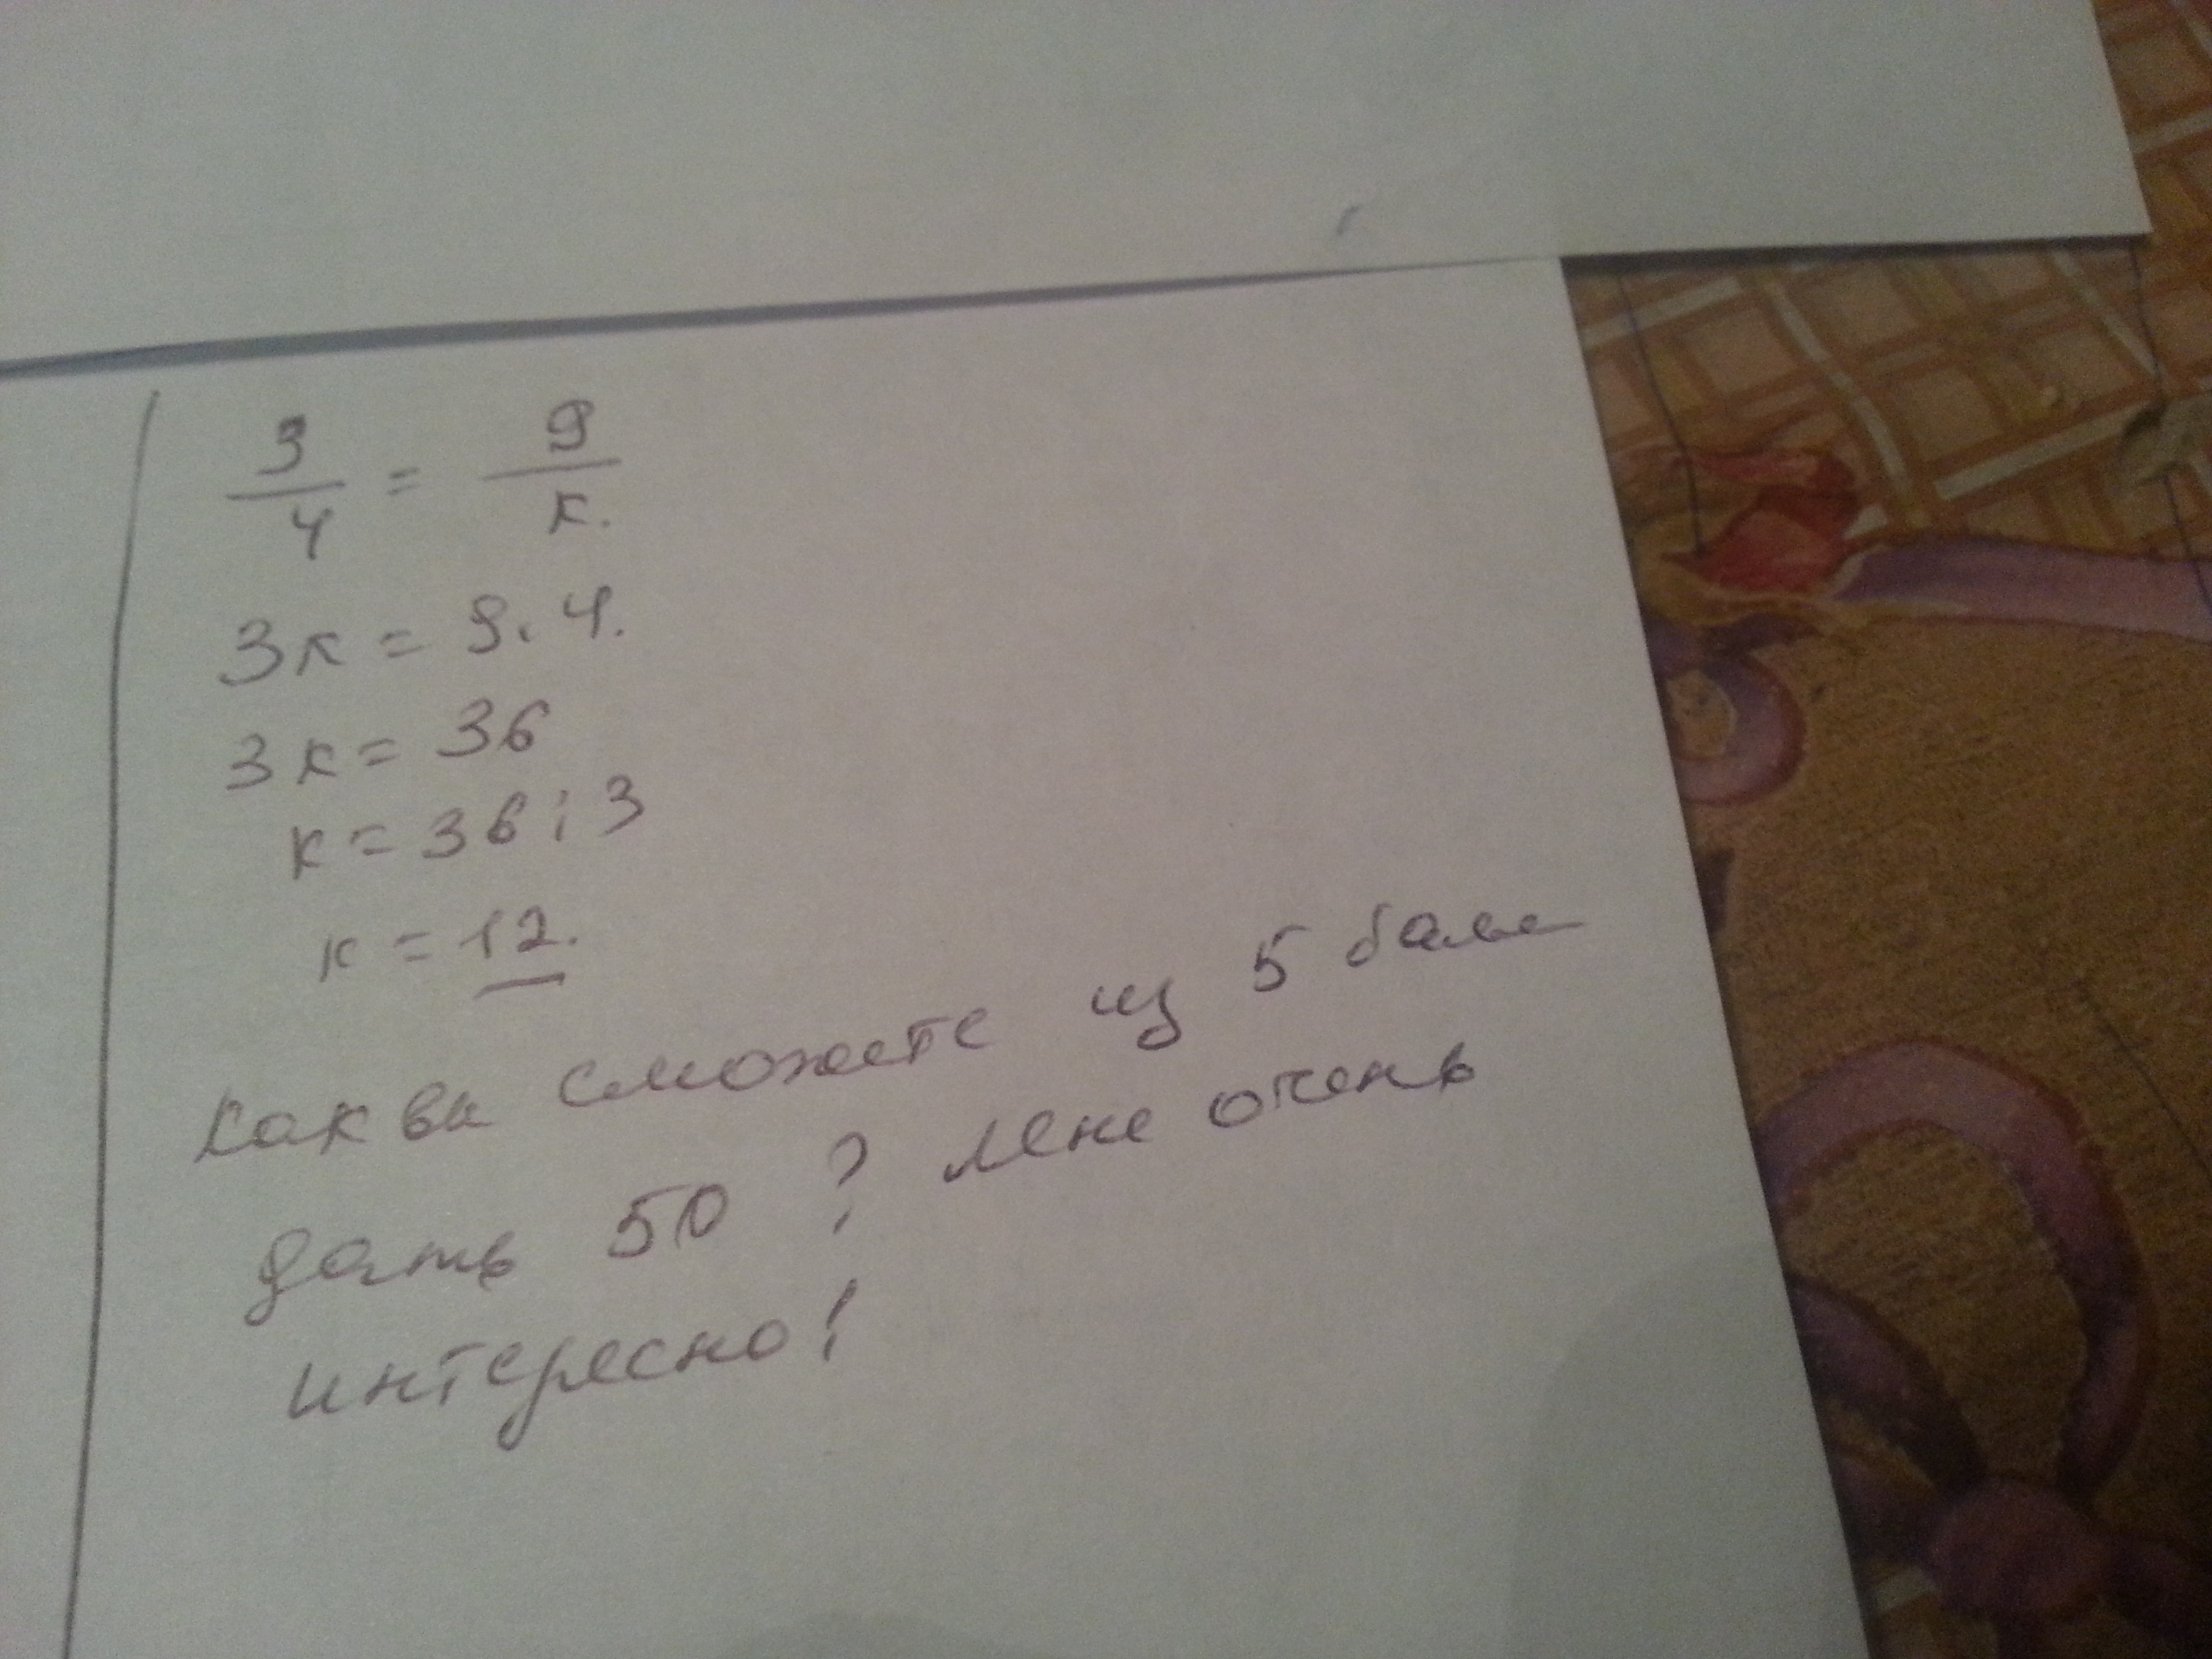 3/4 = 9/к.
3к = 9. 4.
3к = 36
к = 36 : 3
к = 12.
как вы сможете из 5 балов
дать 50 ? Мне очень
интересно!